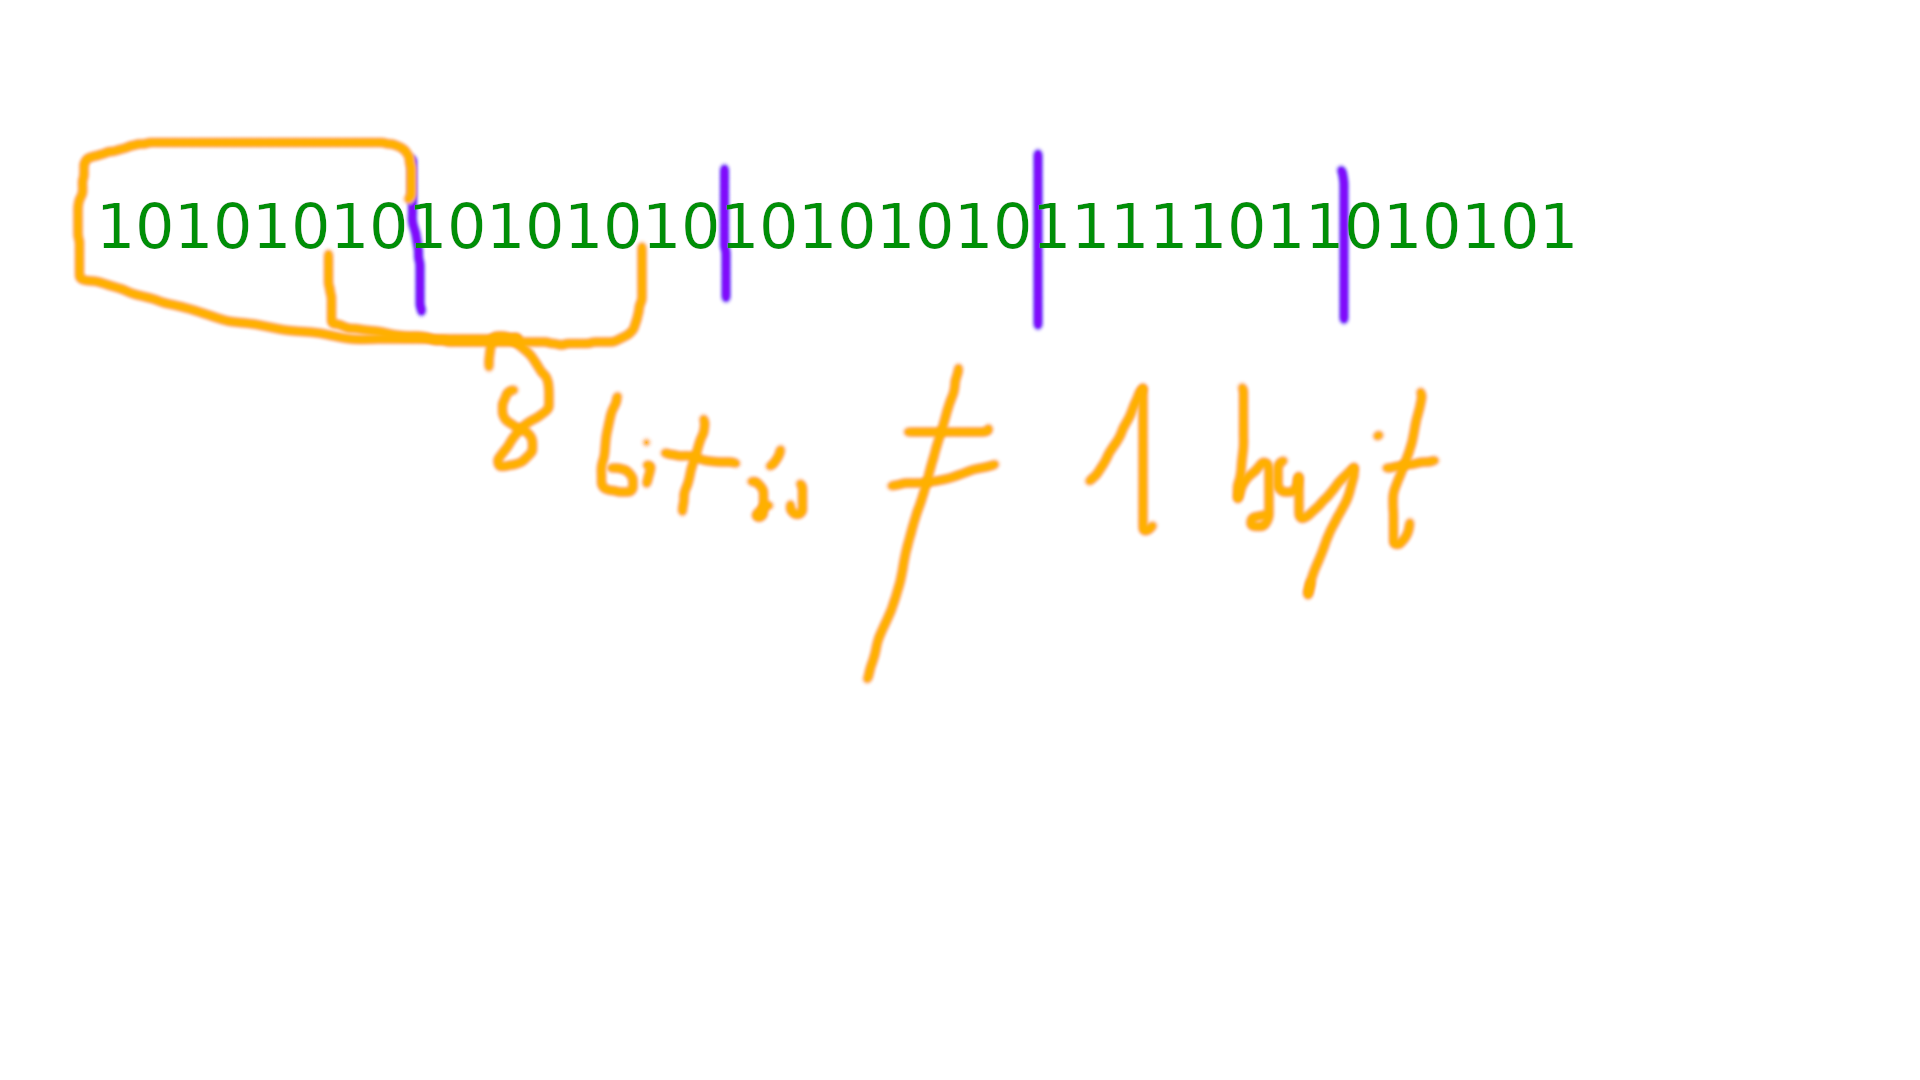 10101010101010101010101011111011010101
8 bitów ≠ 1 bajt